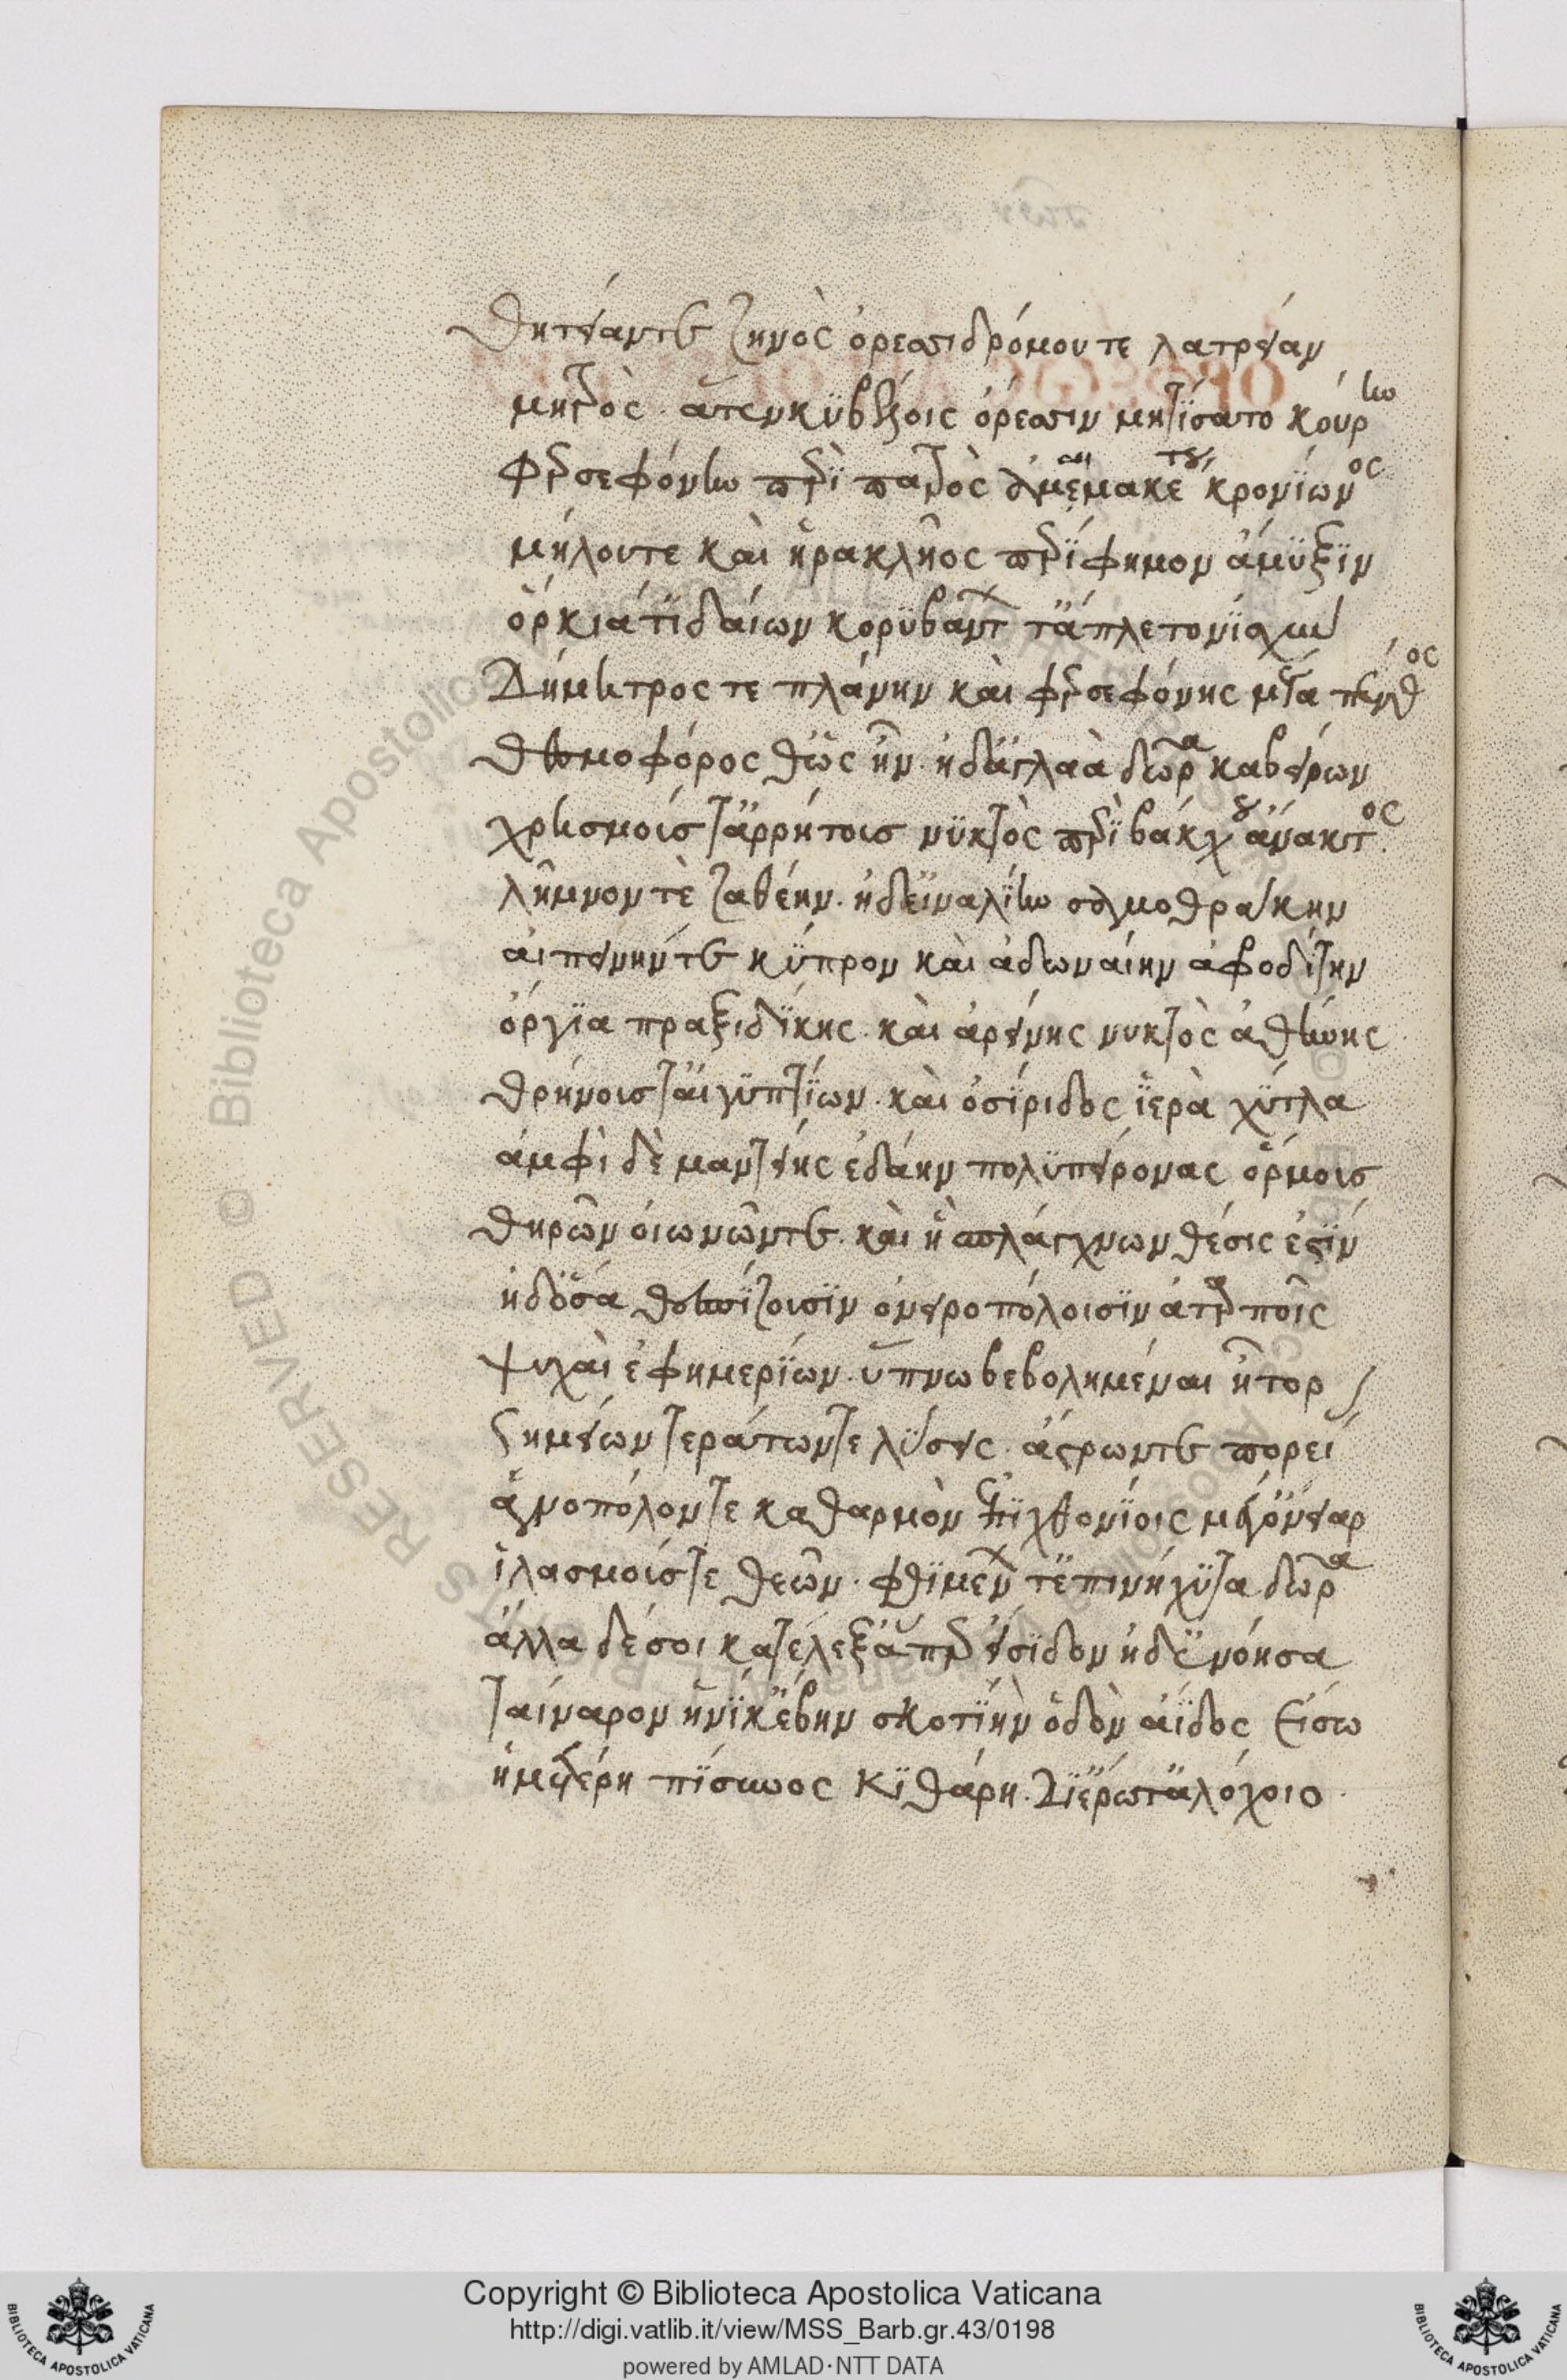 θητείαν τε ζηνὸς ὀρεσσιδρόμου τε λατρείαν
μητρὸς. ἅτ' ἐν κϋβέλοις ὄρεσσιν μητΐσατο κούρην
φερσεφόνην περὶ πατρὸς κρονίωνος
μήλου τε καὶ ἡρακλῆος περίφημον ἄμϋξϊν
ὅρκιά τ' ϊδαίων κορϋβάντων τ' ἄπλετον ϊσχὺν
Δήμητρός τε πλάνην καὶ φερσεφόνης μέγα πένθος
θεσμοφόρος θ' ὡς ἦν. ἠδ' ἀγλαὰ δῶρα καβείρων
χρησμοὺσ τ' ἀρρήτουσ νϋκτὸς περὶ βάκχου ἄνακτος.
λῆμνόν τὲ ζαθέην. ἠδ' εἰναλίην σαμοθράκην
αἰπεινήν τε κύπρον καὶ ἀδωναίην ἀφροδίτην
ὄργϊα πραξιδίκης. καὶ ἀρείνης νυκτὸς ἀθήνης
θρήνουσ τ' αἰγϋπτΐων. καὶ ὀσίριδος ϊερὰ χύτλα
ἀμφὶ δὲ μαντείης ἐδάην πολϋπείρονας ὅρμουσ
θηρῶν οἰωνῶν τε. καὶ ἣ σπλάγχνων θέσις ἐστίν
ἠδ' ὅσα θεσπίζουσϊν ὀνειροπόλοισϊν ἀταρποῖς
ψυχαὶ ἐφημερίων. ὕπνω βεβολημέναι ἦτορ
σημείων τεράτων τε λύσεις. ἄστρων τε πορεί
ἁγνοπόλον τε καθαρμὸν ἐπϊχθονίοις μέγ' ὄνειαρ
ἱλασμούς τε θεῶν. φθϊμένων τ' ἐπινήχϋτα δῶρα
ἄλλα δέ σοι κατέλεξ' ἅπερ εἴσϊδον ἠδ' ἐνόησα
ταίναρον ἡνίκ' ἔβην σκοτίην ὁδὸν ἄϊδος εἴσω
ἡμετέρη πίσυνος κϊθάρη. δι' ἔρωτ' ἀλόχοιο.
Copyright © Biblioteca Apostolica Vaticana
http://digi.vatlib.it/view/MSS_Barb.gr.43/0198
powered by AMLAD·NTT DATA